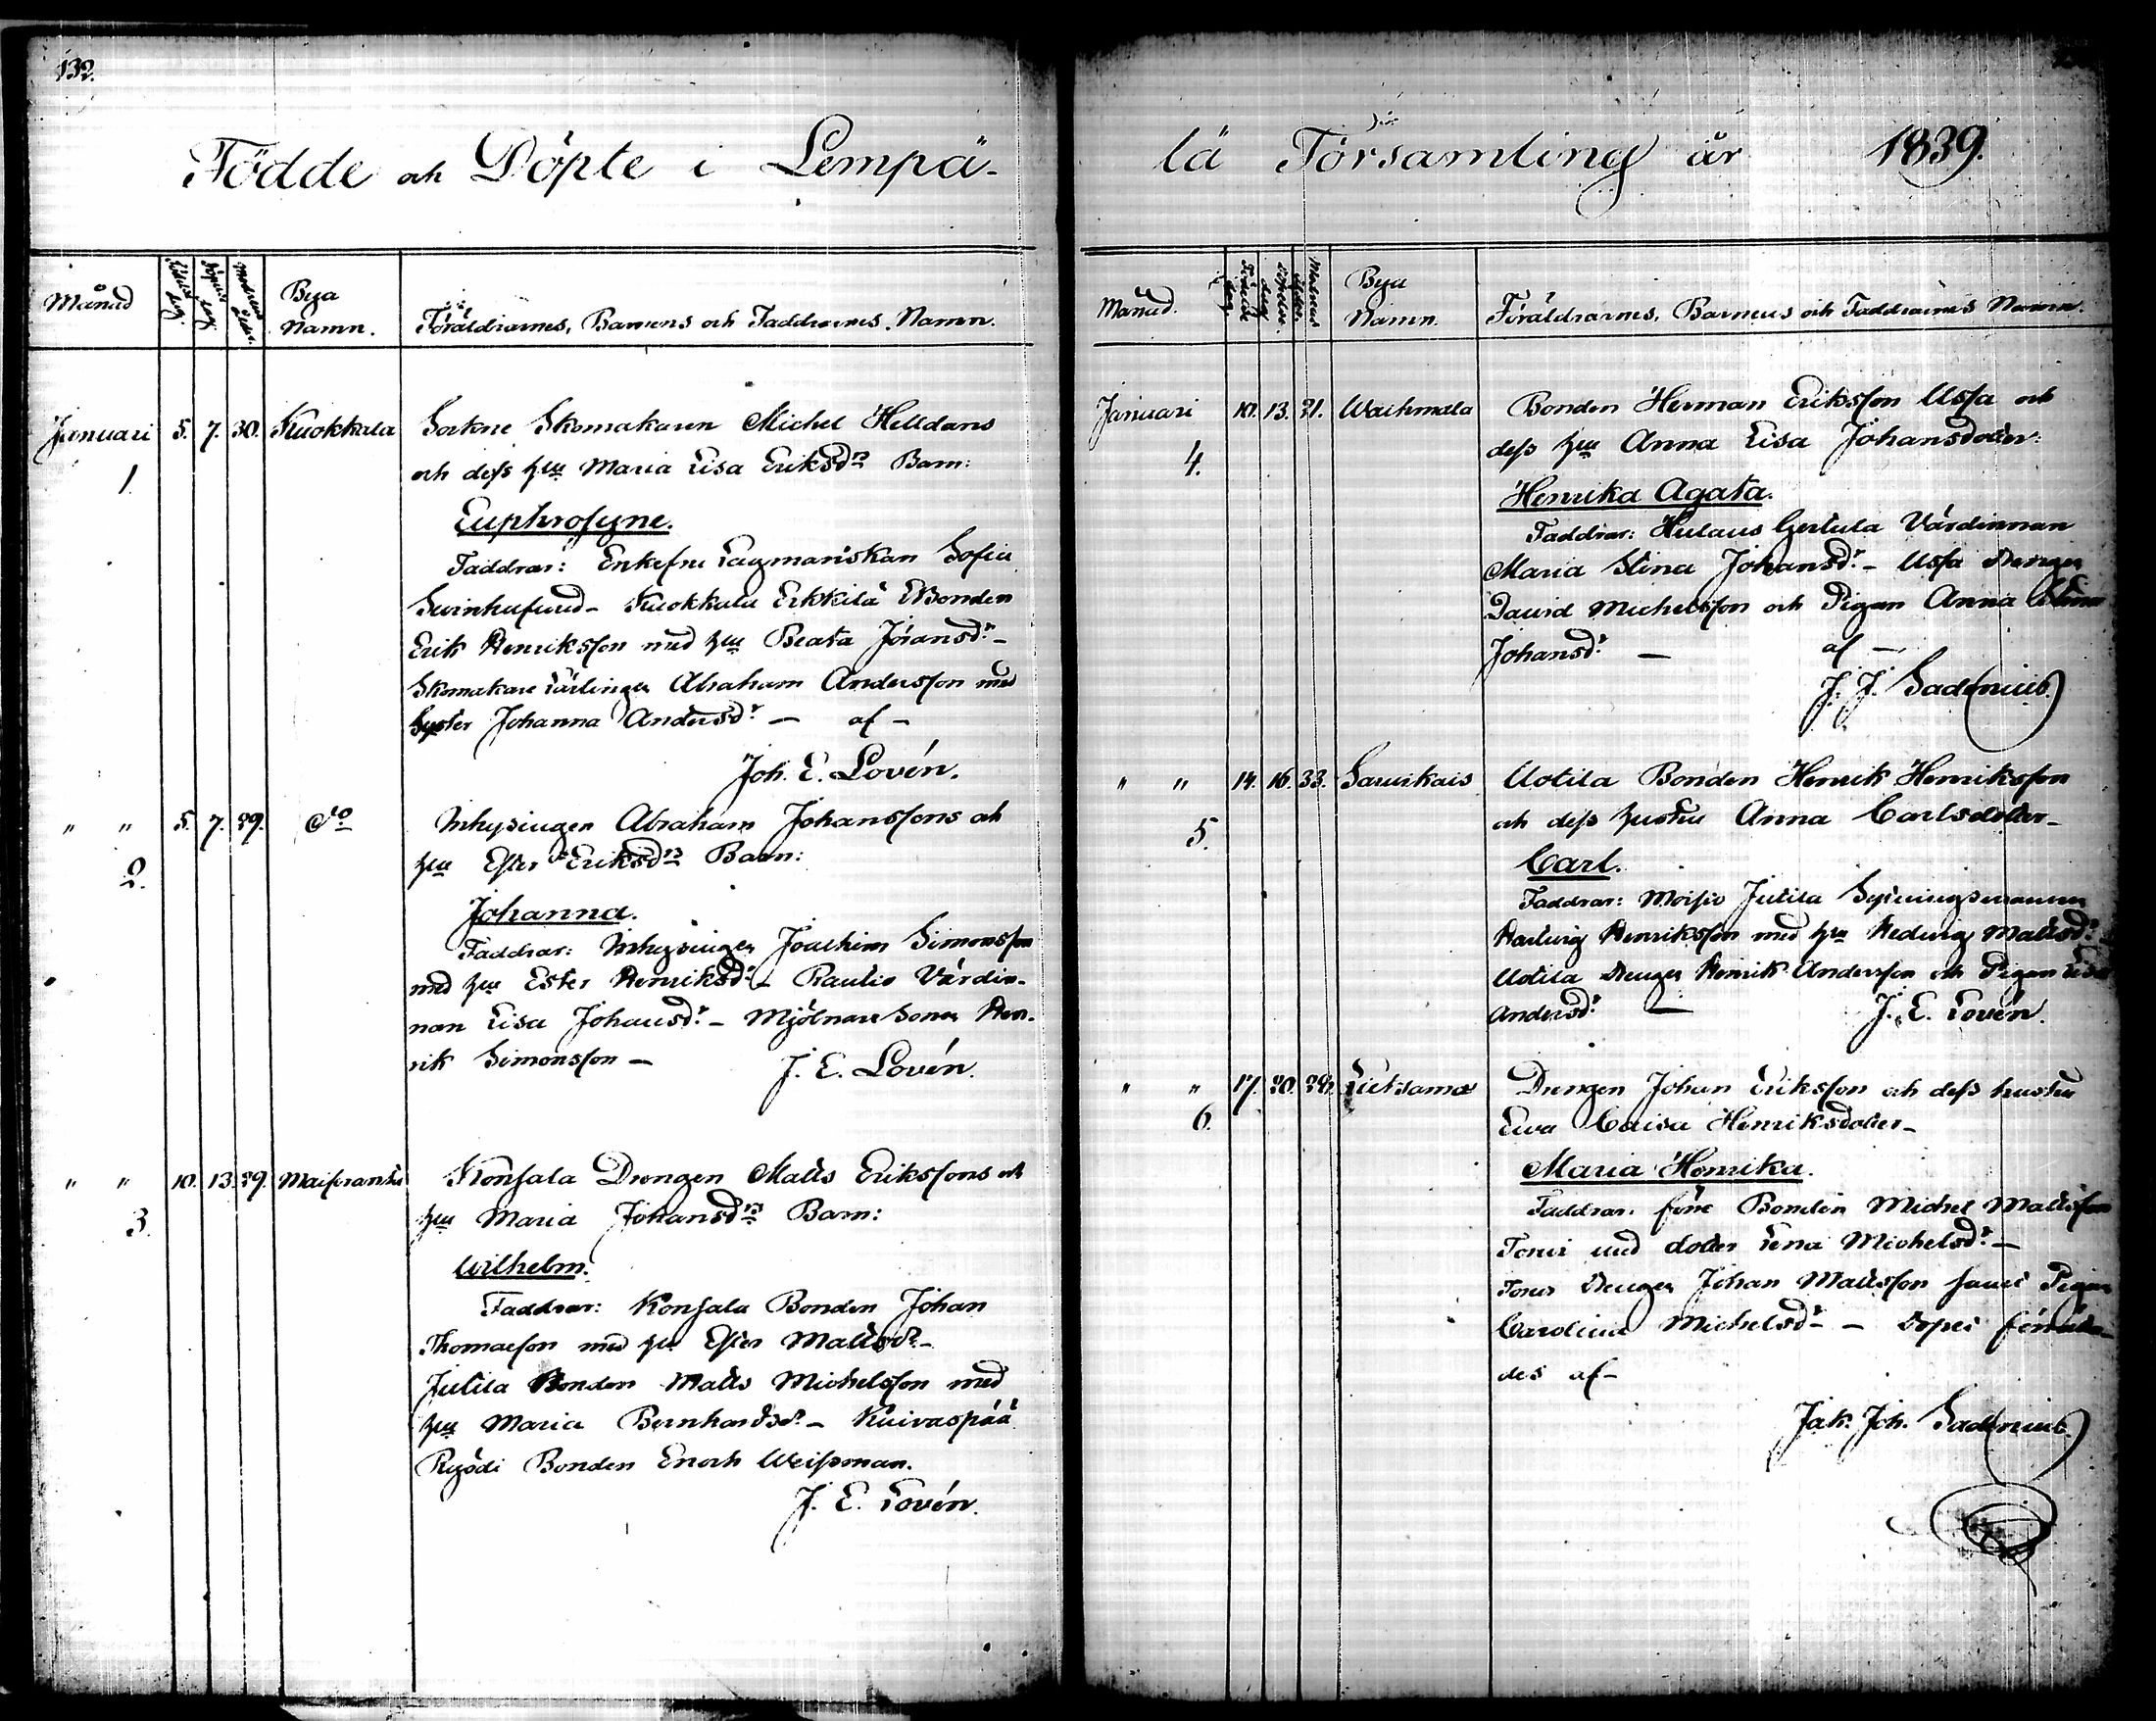 132.
Födde och Döpte i Lempä-
Månad
Födelse dag.
Döpelse dag.
Modrens ålder.
Bya
Namn.
Föräldrarnes, Barnens och Faddrarnes Namn.
Januari 5. 7. 30. Kuokkala Sockne Skomakaren Michel Helldans
1. och dess hu Maria Lisa Eriksdrs Barn:
Euphrosyne.
Faddrar: Enkefru Lagmanskan Sofia
Svinhufvud - Kuokkala Erkkilä EBonden
Erik Henriksson med hu Beata Jöransdr -
Skomakare Lärlingen Abraham Andersson med
Syster Johanna Andersdr - af -
Joh. E. Lovén.
" " 5. 7. 29. do Inhysingen Abraham Johanssons och
2. hu Ester Eriksdrs Barn:
Johanna.
Faddrar: Inhysingen Joachim Simonsson
med hu Ester Henriksdr - Rautio Värdin-
nan Lisa Johansdr - Mjölnare Sonen Hen-
rik Simonsson -
J. E. Lovén.
" " 10. 13. 29. Maisiansi Konsala Drengen Matts Erikssons och
3. hu Maria Johansdrs Barn:
Wilhelm.
Faddrar: Konsala Bonden Johan
Thomasson med hu Ester Mattsdr -
Jutila Bonden Matts Michelsson med
hu Maria Bernhardsdr - Kuivaspää
Ryödi Bonden Enoch Weisman.
J. E. Lovén.
lä Församling år 1839.
Månad.
Födelse dag
Döpelse dag
Modrens ålder
Bya
Namn.
Föräldrarnes, Barnens och Faddrarnes Namn.
Januari 10. 13. 21. Waihmala Bonden Herman Eriksson Ussa och
4. dess hu Anna Lisa Johansdotter:
Henrika Agata.
Faddrar: Hulaus Gertula Värdinnan
Maria Stina Johansdr - Ussa Drengen
David Michelsson och Pigan Anna Stina
Johansdr - af -
J. J. Sadenius.
" " 14. 16. 33. Sarvikais Uotila Bonden Henrik Henriksson
5. och dess hustru Anna Carlsdotter -
Carl.
Faddrar: Moisio Jutila Syningsmannen
Hartvig Henriksson med hu Hedvig Mattsdr -
Uotila Drengen Henrik Andersson och Pigan Lisa
Andersdr -
J. E. Lovén.
" " 17. 20. Lietsama Drengen Johan Eriksson och dess hustru
6. Ewa Caisa Henriksdotter -
Maria Henrika.
Faddrar: före Bonden Michel Mattsson
Toivi med dotter Lena Michelsdr -
Drengen Johan Mattsson samt Pigan
Carolina Michelsdr - Döpt förrätta-
des af -
Jak. Joh. Sadenius.